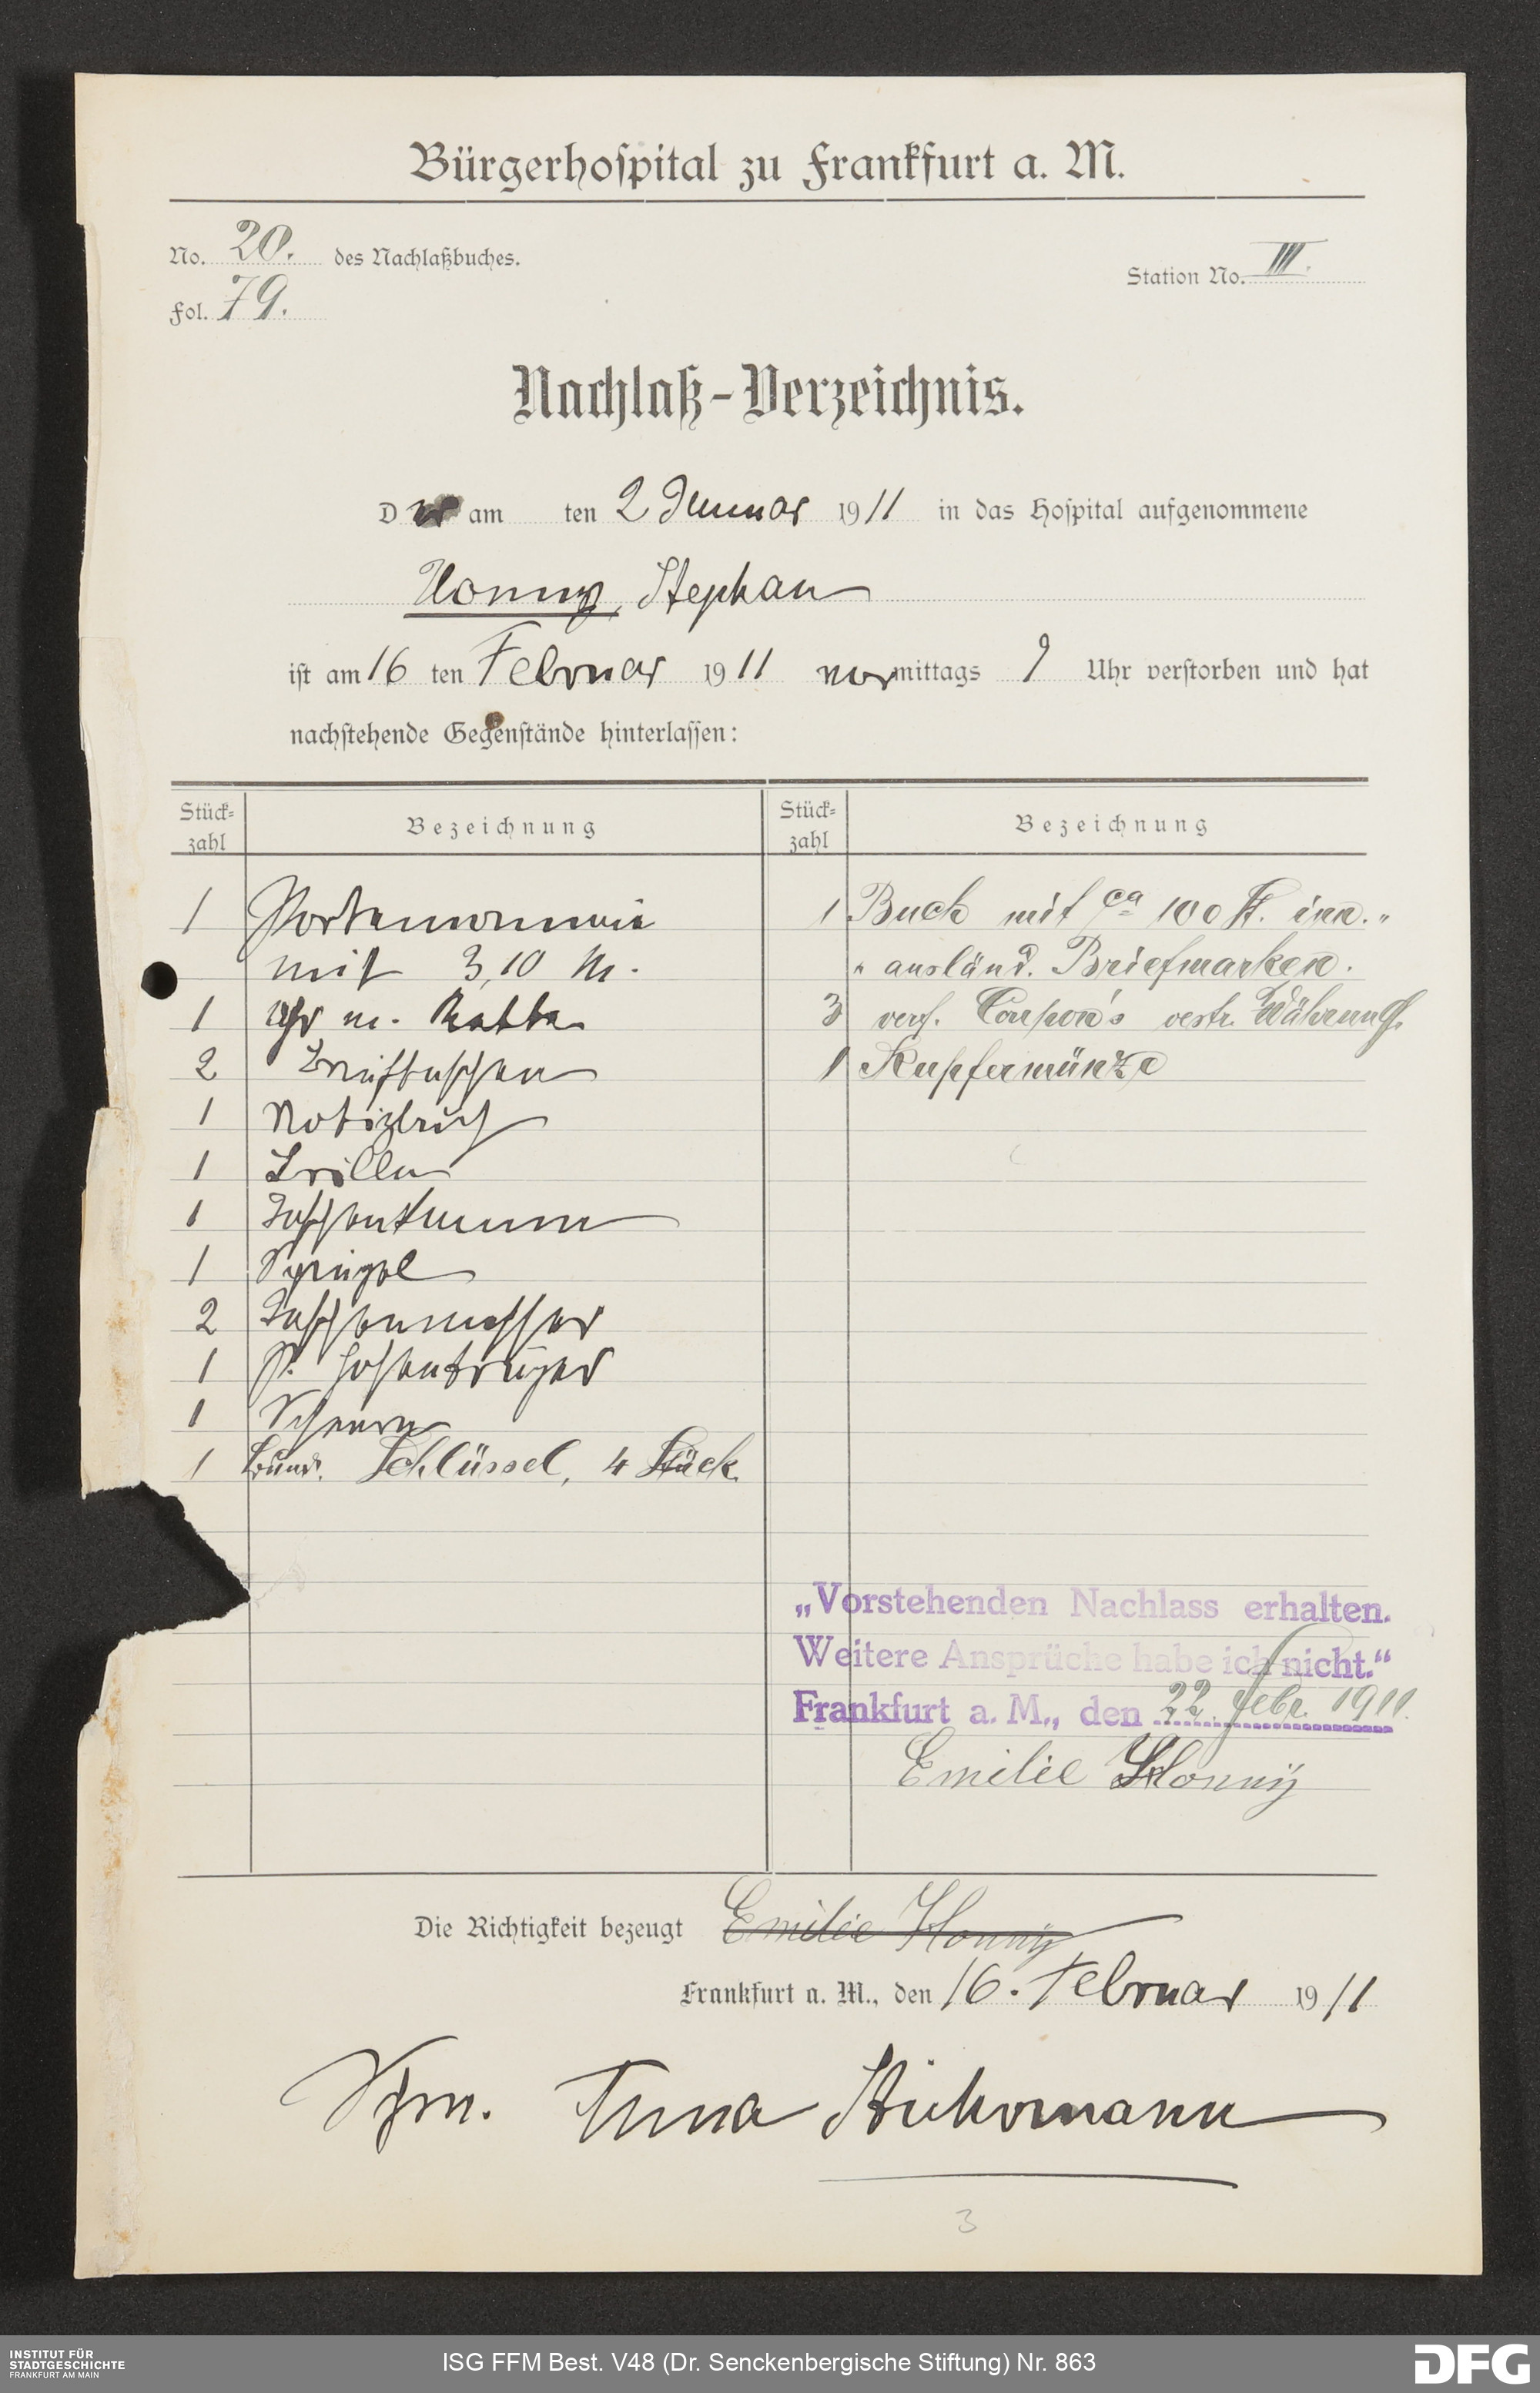 Bürgerhoſpital zu Frankfurt a. M.
No. 20. des Nachlaßbuches.
Station No. III.
Fol. 79.
Nachlaß-Verzeichnis.
Der am ten 2 Januar 1911 in das Hoſpital aufgenommene
Honny, Stephan
iſt am 16 ten Februar 1911 vormittags 9 Uhr verſtorben und hat
nachſtehende Gegenſtände hinterlaſſen:
Stück-zahl Bezeichnung Stück-zahl Bezeichnung
1 Portemonnaie
mit 3,10 M.
1 Uhr m. Kette
2 Brieftaschen
1 Notizbuch
1 Brille
1 Taschenkamm
1 Spiegel
2 Taschenmesser
1 P. Hosenträger
1 Scheere
1 Bund. Schlüssel, 4 Stück
1 Buch mit ca 100 St. inn. "
" ausländ. Briefmarken.
3 versch. Coupon's oestr. Währung
1 Kupfermünze
„Vorstehenden Nachlass erhalten.
Weitere Ansprüche habe ich nicht.“
Frankfurt a. M., den 22. Febr. 1911.
Emilie Honny
Die Richtigkeit bezeugt Emilie Honny
Frankfurt a. M., den 16. Februar 1911
Schw. Anna
3
INSTITUT FÜR
STADTGESCHICHTE
FRANKFURT AM MAIN
ISG FFM Best. V48 (Dr. Senckenbergische Stiftung) Nr. 863
DFG